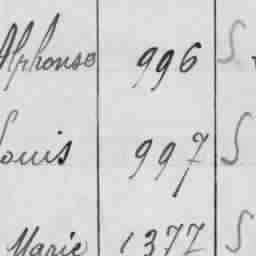 Alphonse 996 S
Louis 997 S
Marie 1377 S